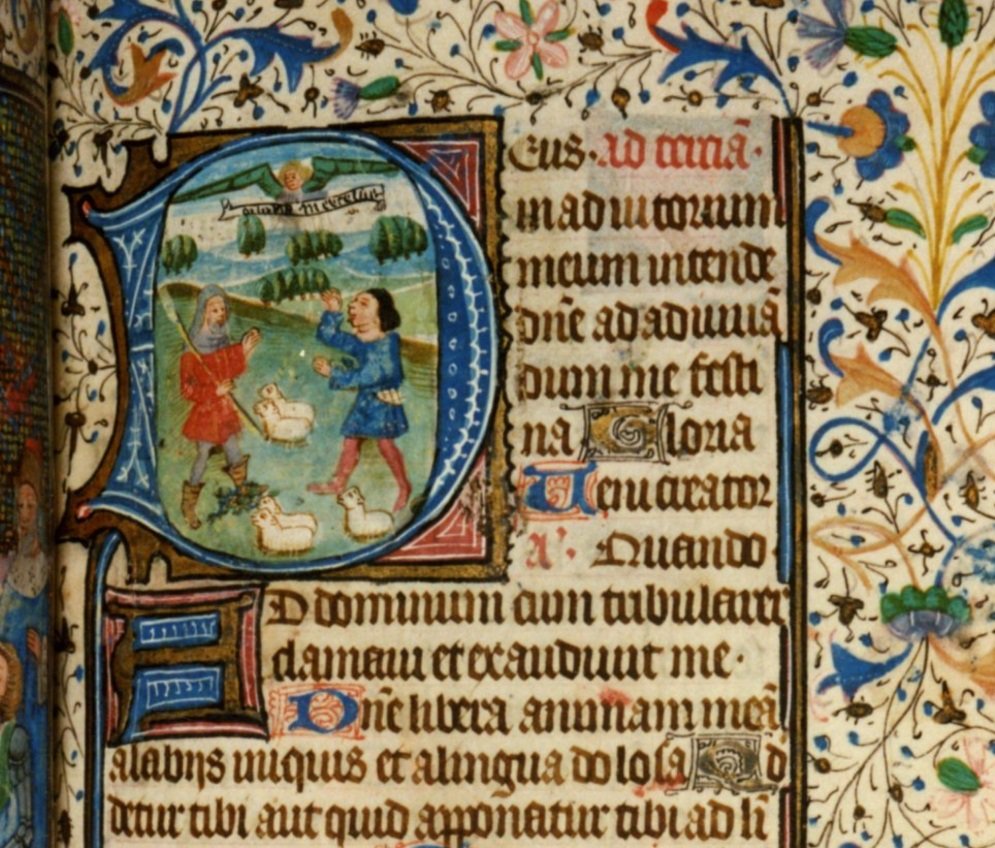 gloria in excelsis
Deus · ad terciā ·
in adiutorium
meum intende
dn̄e ad adiuuā
dum me festi
na Gloria
Ueni creator
A'. Quando
AD dominum cum tribularer
clamaui et exaudiuit me ·
Dn̄e libera animam meā
a labijs iniquis et a lingua dolosa Quid
detur tibi aut quid apponatur tibi ad li